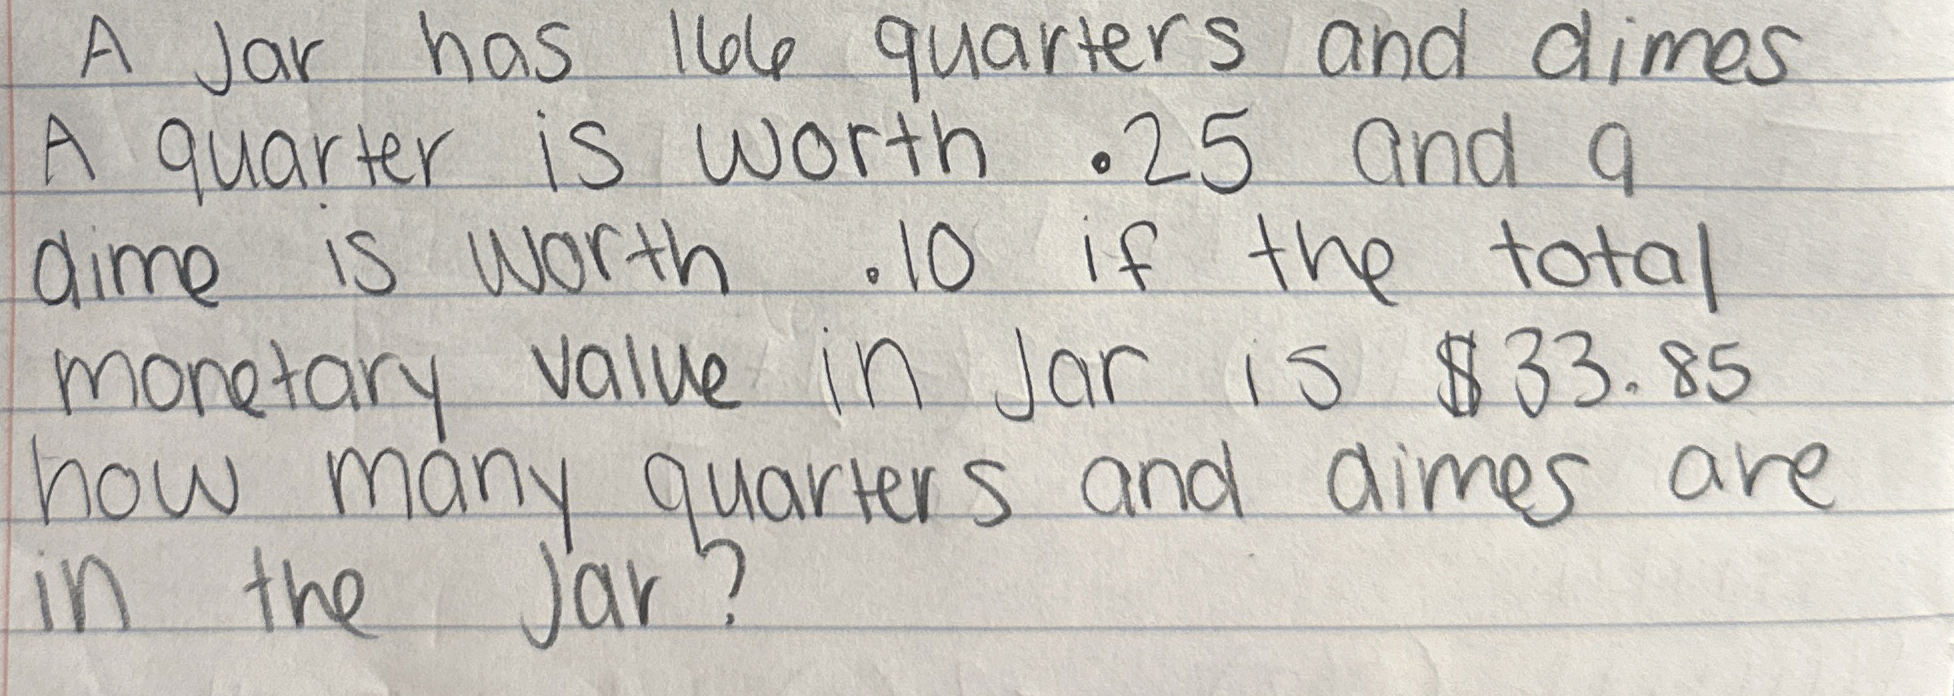 A Jar has 166 quarters and dimes
A quarter is worth .25 and a
dime is worth .10 if the total
monetary value in Jar is $33.85
how many quarters and dimes are
in the Jar?